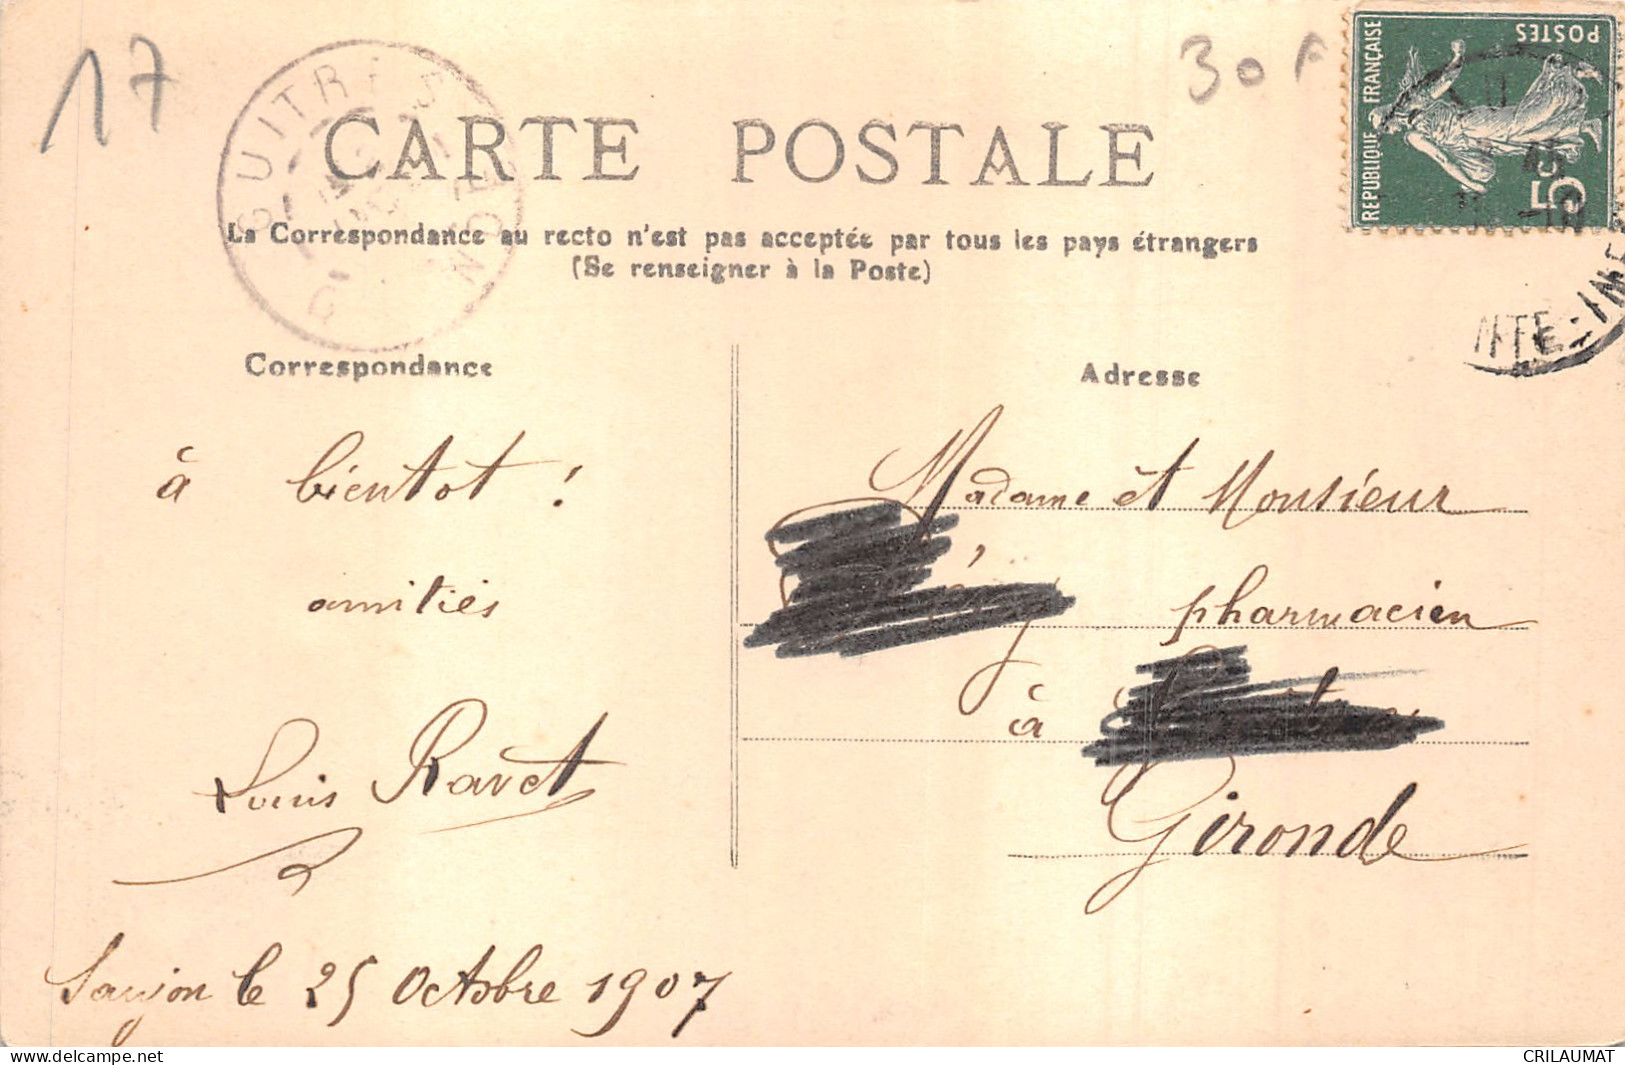 17
30F
GUITRES
GIRONDE
REPUBLIQUE FRANÇAISE
POSTES
5
NTE-INF
CARTE POSTALE
La Correspondance au recto n'est pas acceptée par tous les pays étrangers
(Se renseigner à la Poste)
Correspondance
à bientot !
amitiés
Louis Ravet
Saujon le 25 Octobre 1907
Adresse
Madame et Monsieur
pharmacien
à
Gironde
www.delcampe.net
CRILAUMAT